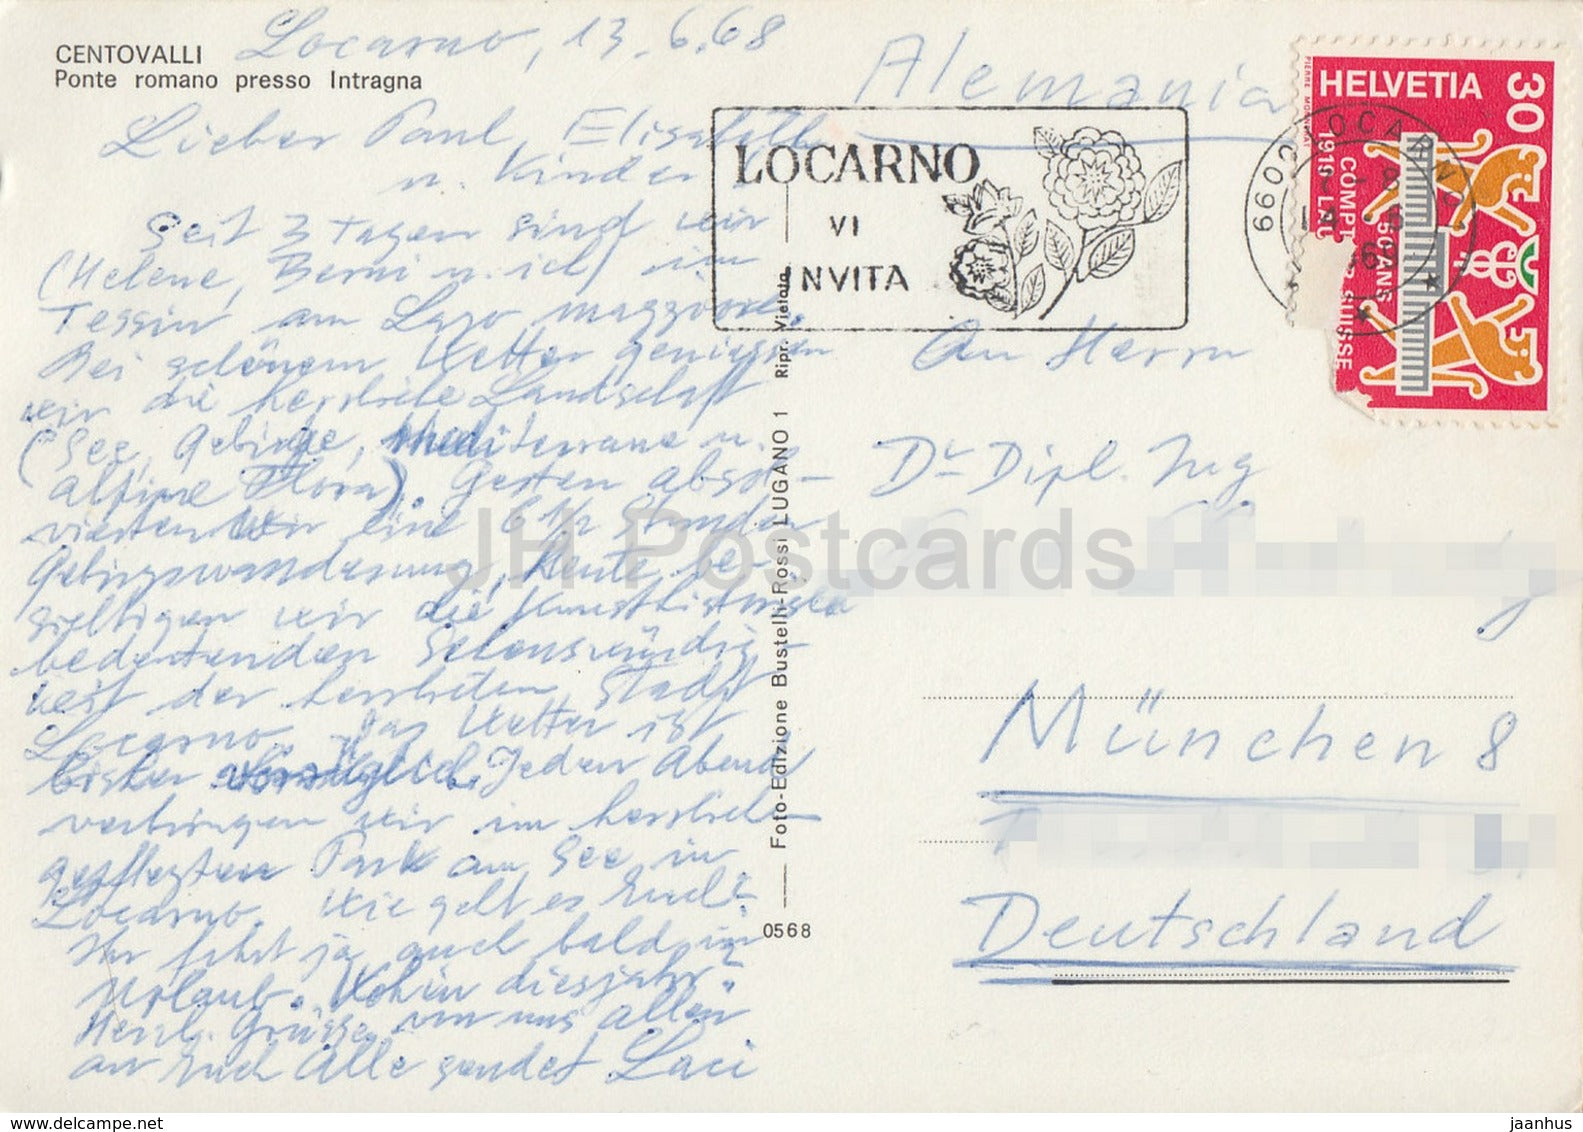 CENTOVALLI
Ponte romano presso Intragna
Locarno, 13.6.68
Lieber Paul, Elisabeth
u. Kinder
Seit 3 Tagen sind wir
(Helene, Berni u. ich) im
Tessin am Lago maggiore.
Bei schönem Wetter geniessen
wir die herrliche Landschaft
(See, Gebirge, mediterrane u.
alpine Flora). Gestern absol-
vierten wir eine 6 1/2 Stunden
Gebirgswanderung, Heute be-
sichtigen wir die kunsthistorisch
bedeutenden Sehenswürdig-
keit der herrlichen Stadt
Locarno. Das Wetter ist
bisher vorzüglich. Jeden Abend
verbringen wir im herrlichen
gepflegten Park am See in
Locarno. Wie geht es Euch?
Ihr fahrt ja auch bald in
Urlaub. Wohin diesjahr?
Herzl. Grüsse von uns allen
an Euch Alle sendet Laci
Foto-Edizione Bustelli-Rossi LUGANO 1 Ripr. Vietata
0568
Alemania
LOCARNO
VI
INVITA
6602 LOCARNO
HELVETIA
30
PIERRE MONNERAT
COMPT SUISSE
50 ANS
An Herrn
Dr Dipl. Ing
München 8
Deutschland
JH Postcards
www.delcampe.net
jaanhus